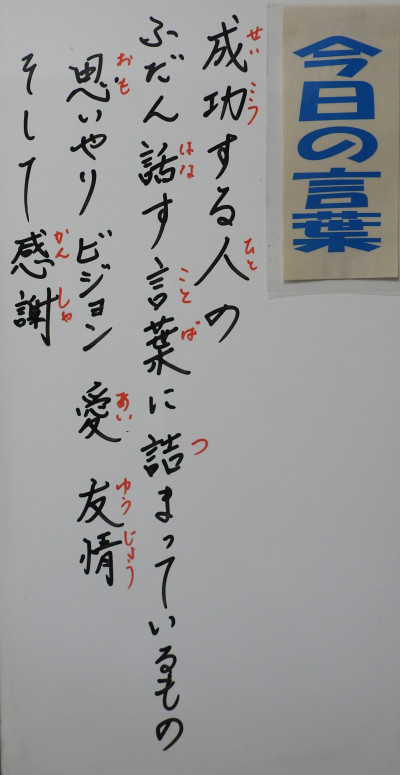 今日の言葉
成功する人の
せいこう ひと
ふだん話す言葉に詰まっているもの
はな ことば つ
思いやり ビジョン 愛 友情
おも あい ゆうじょう
そして感謝
かんしゃ